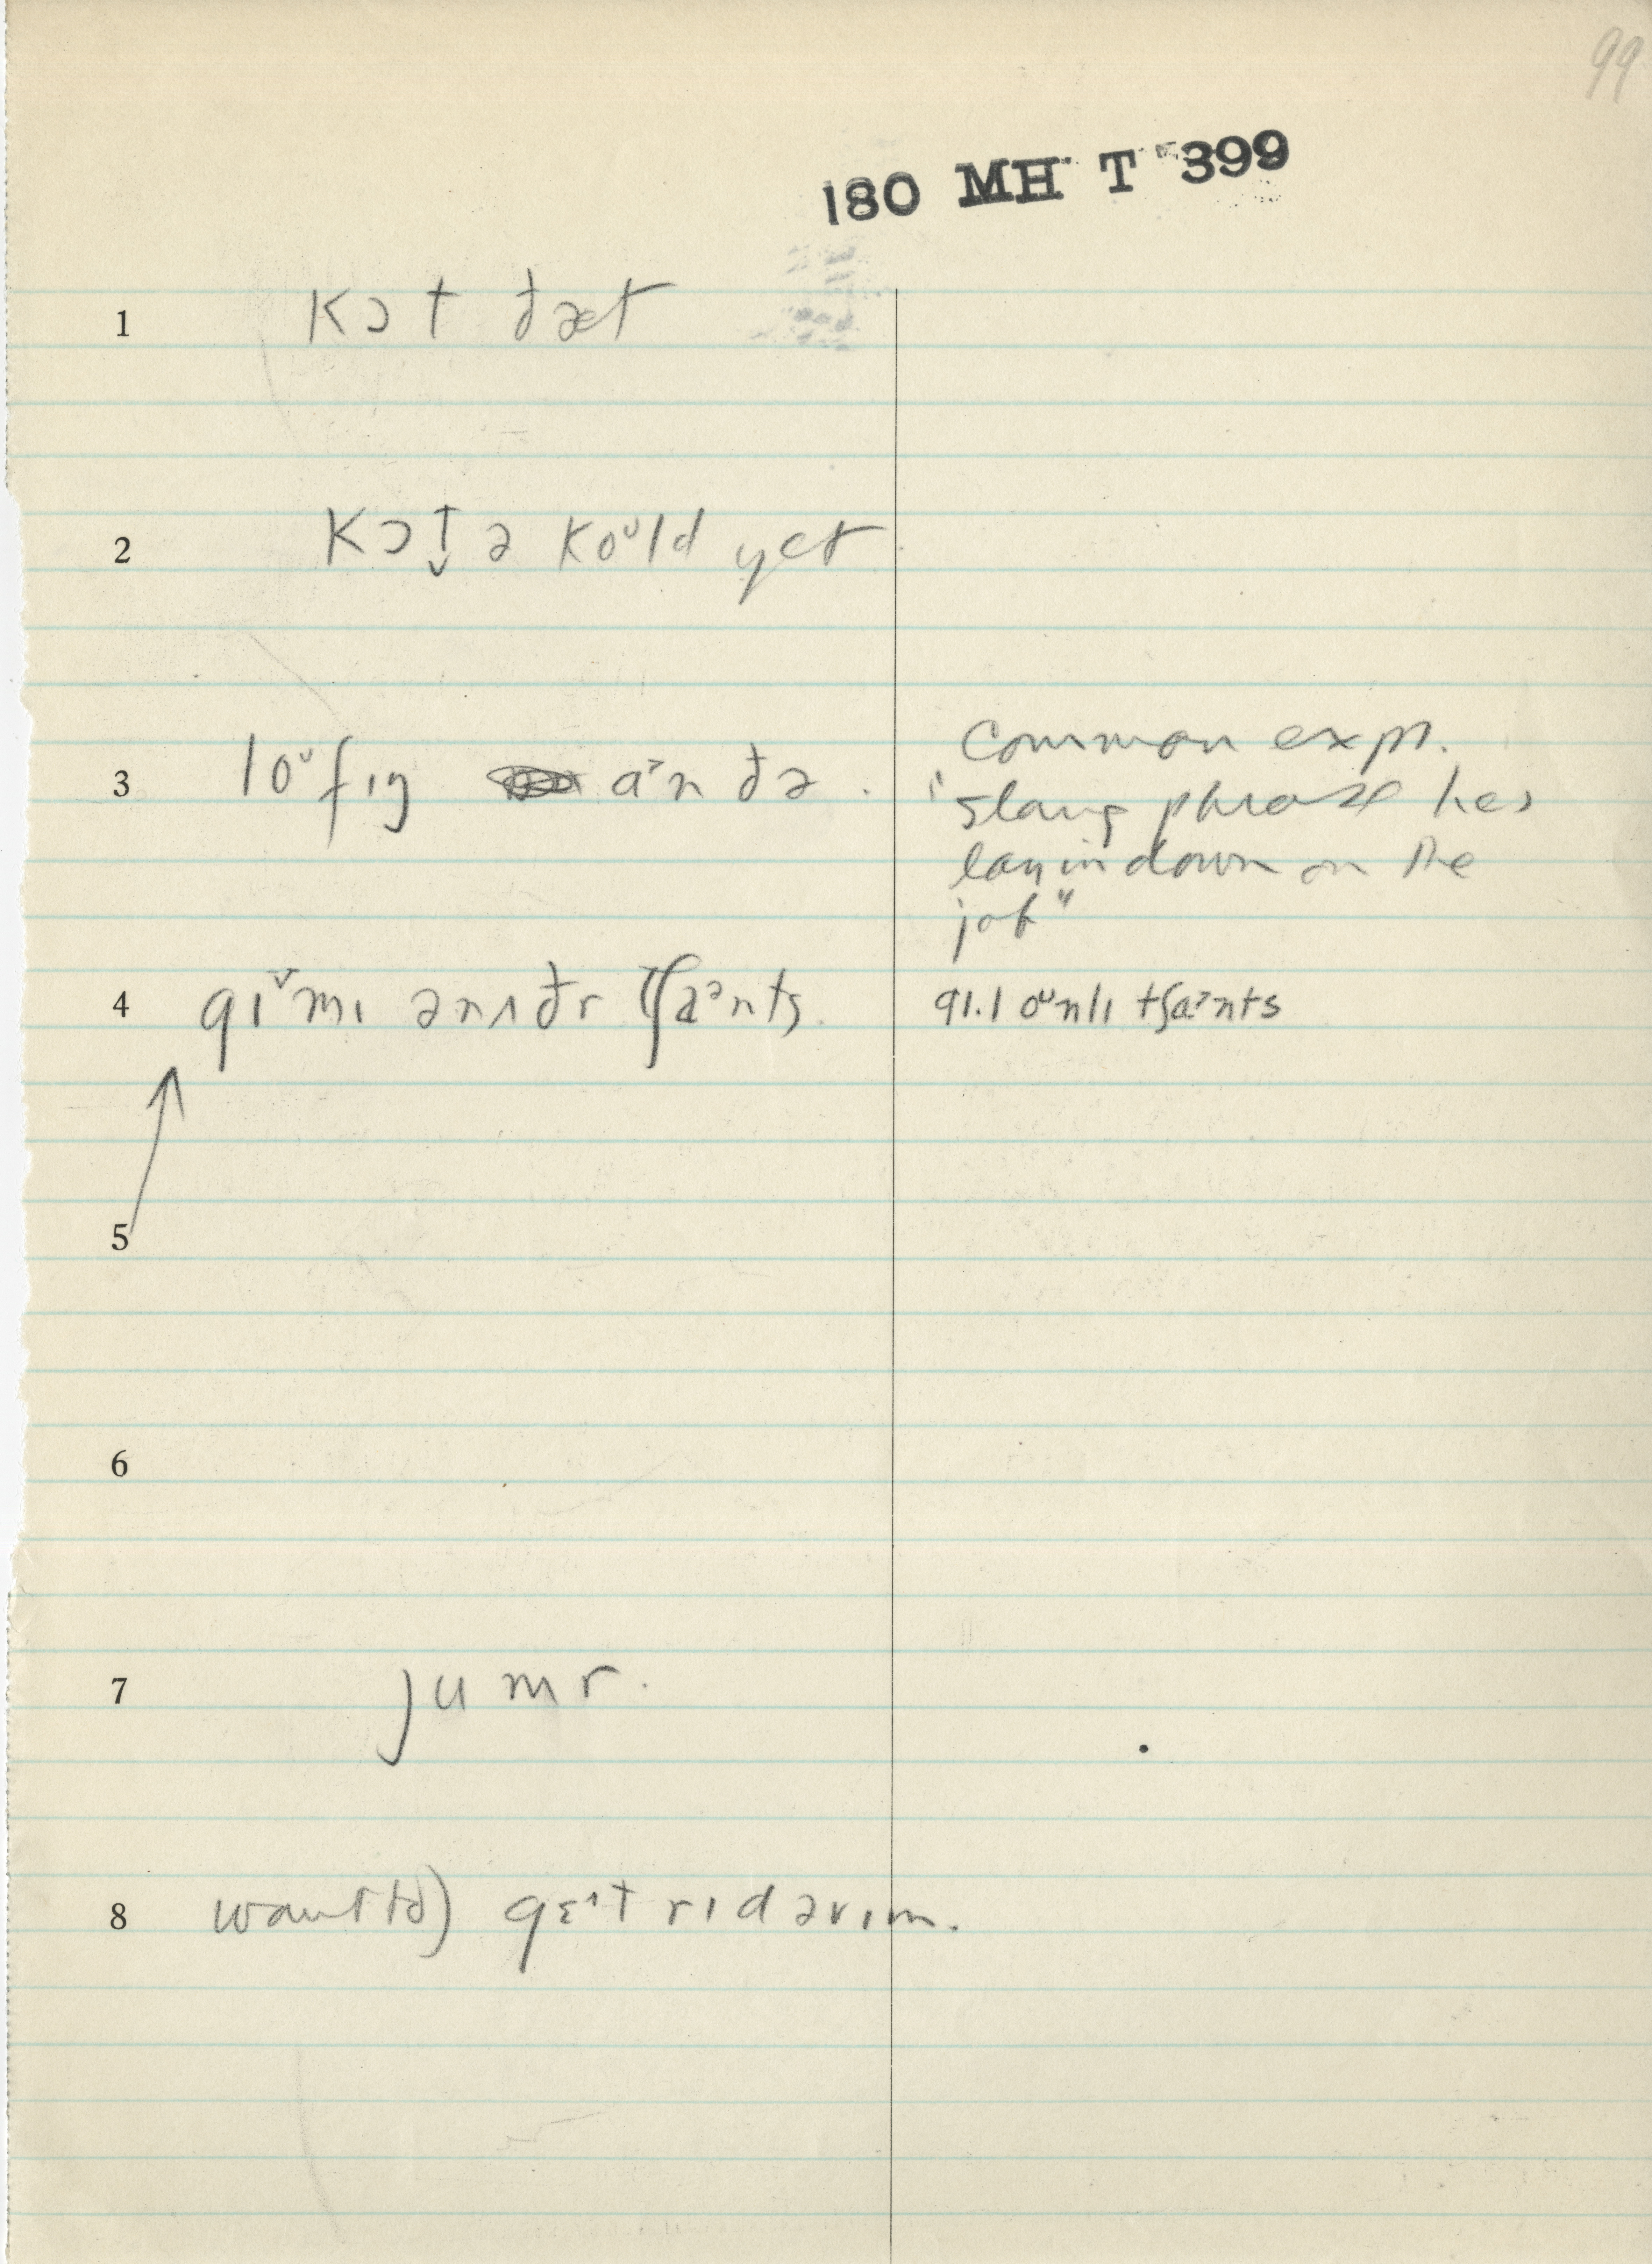 99
180 MH T 399
1 kɔt ðæt
2 kɔt̬ ə koᶷld yet
3 loᶷfɪŋ a˃n ðə .
Common expr.
"slang phrase hes
layin down on the
job"
4 gɪ˅mɪ ənʌðr tʃaᵊnts
91.1 oᶷnlɪ tʃa˃nts
5
6
7 jumr.
8 want to) gɛ˄t rɪd əvɪm.